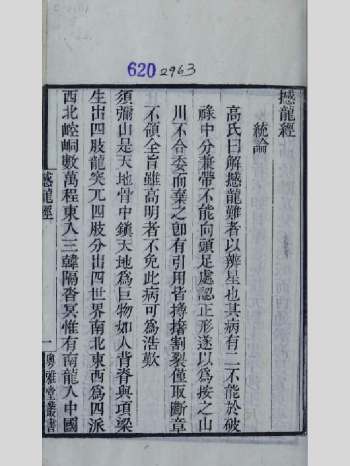 620 2963
撼龍經
統論
高氏曰解撼龍難者以辨星也其病有二不能於破
祿中分兼帶不能向頭足處認正形遂以為按之山
川不合委而棄之即有引用皆摶撦割裂僅取斷章
不領全旨雖高明者不免此病可為浩歎
須彌山是天地骨中鎮天地為巨物如人背脊與項梁
生出四肢龍突兀四肢分出四世界南北東西為四派
西北崆峒數萬程東入三韓隔杳冥惟有南龍入中國
撼龍經
一
粵雅堂叢書